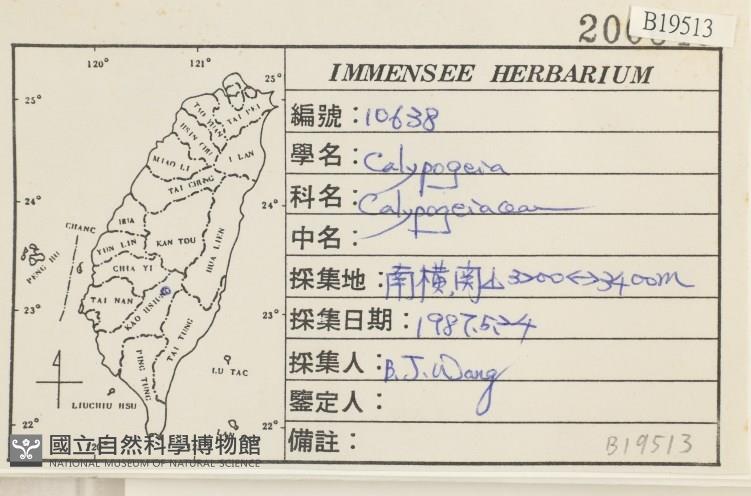 B19513
IMMENSEE HERBARIUM
編號：10638
學名：Calypogeia
科名：Calypogeiaceae
中名：
採集地：南橫,関山3200<->3400m
採集日期：1987.5.24
採集人：B.J.Wang
鑒定人：
備註：
B19513
120° 121°
25° 25°
TAO YUAN
TAI PEI
HSIN CHU
MIAO LI
I LAN
TAI CHUNG
24° 24°
CHANG
HUA
YUN LIN
KAN TOU
HUA LIEN
PENG HU
CHIA YI
TAI NAN
KAO HSIUNG
23° 23°
TAI TUNG
PING TUNG
LU TAO
LIUCHIU HSU
22° 22°
國立自然科學博物館
NATIONAL MUSEUM OF NATURAL SCIENCE